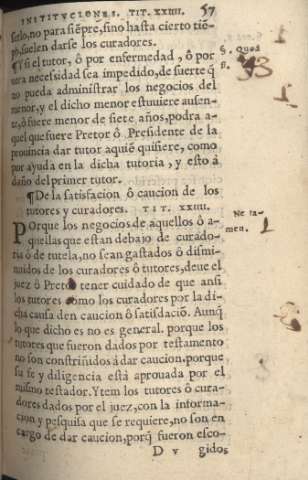 INSTITVCIONES. TIT. XXIIII. 57
serlo, no para siẽpre, sino hasta cierto tiẽ-
po, suelen darse los curadores.
¶Y si el tutor, ô por enfermedad, ô por §. Quod
otra necessidad sea impedido, de suerte q̃ si.
no pueda administrar los negocios del
menor, y el dicho menor estuuiere ausen-
te, ô fuere menor de siete años, podra a-
quel que fuere Pretor ô Presidente de la
prouincia dar tutor aquiẽ quisiere, como
por ayuda en la dicha tutoria, y esto â
daño del primer tutor.
¶De la satisfacion ô caucion de los
tutores y curadores. TIT. XXIIII.
Porque los negocios de aquellos ô a- Ne ta-
quellas que estan debajo de curado- men.
ria ô de tutela, no sean gastados ô dismi-
nuidos de los curadores ô tutores, deue el
juez ô Pretor tener cuidado de que ansi
los tutores como los curadores por la di-
cha causa den caucion ô satisdaciõ. Aunq̃
lo que dicho es no es general. porque los
tutores que fueron dados por testamento
no son constriñidos â dar caucion, porque
su fe y diligencia està aprouada por el
mismo testador. Ytem los tutores ô cura-
dores dados por el juez, con la informa-
cion y pesquisa que se requiere, no son en
cargo de dar caucion, porq̃ fueron esco-
D v gidos